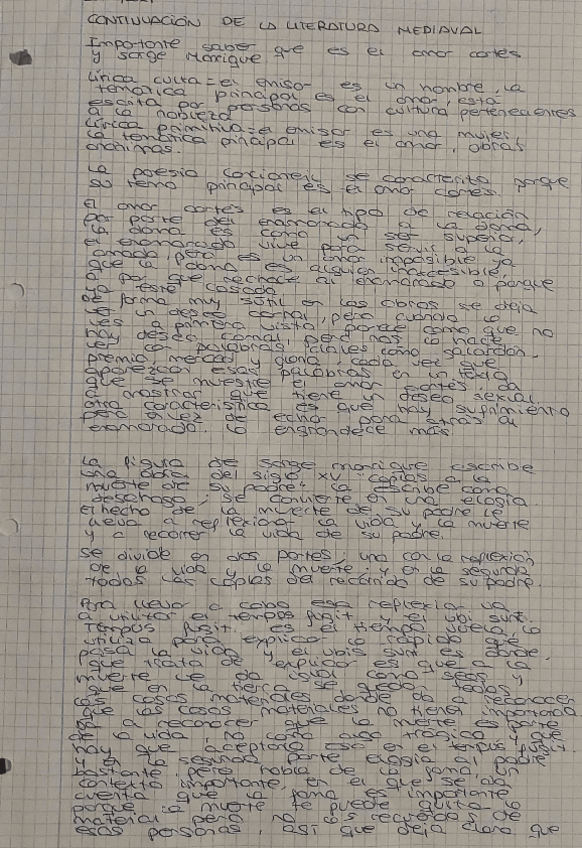 CONTINUACIÓN DE LA LITERATURA MEDIAVAL
Importante saber que es el amor cortes
y Jorge Manrique
Lírica culta = el emisor es un hombre, la
temática principal es el amor, está
escrita por personas con cultura pertenecientes
a la nobleza
Lírica primitiva = emisor es una mujer,
la temática principal es el amor, obras
anonimas.
La poesía cancioneril se caracteriza porque
su tema principal es el amor cortes.
el amor cortes es el tipo de relación
por parte del enamorado a la dama,
la dama es como un ser superior,
el enamorado vive para servir a la
amada, pero es un amor imposible ya
que la dama es alguien inaccesible,
o por que rechace al enamorado o porque
ya esté casada.
de forma muy sutil en las obras se deja
ver un deseo carnal, pero cuando lo
lees a primera vista parece como que no
hay deseo carnal, pero nos lo hace
ver con palabras claves como galardon,
premio, merced y gloria cada vez que
aparezcan esas palabras en un texto
que se muestre el amor cortes, da
a mostrar que tiene un deseo sexual.
otra caracteristica es que hay sufrimiento
pero en vez de echar para atrás al
enamorado, lo engrandece más.
La figura de Jorge manrique escribe
una obra del siglo XV: coplas a la
muerte de su padre; la escribe como
desahogo, se convierte en una elogia.
el hecho de la muerte de su padre le
lleva a reflexionar la vida y la muerte
y a recorrer la vida de su padre.
se divide en dos partes: una con la reflexión
de la vida y la muerte; y en la segunda
todas las coplas del recorrido de su padre.
Para llevar a cabo esa reflexión va
a utilizar el tempus fugit y el ubi sunt.
tempus fugit es el tiempo vuela, lo
utiliza para explicar lo rápido que
pasa la vida y el ubis sunt es donde.
que trata de explicar es que a la
muerte le da igual como seas y
que en la tierra se quedan todas
las cosas materiales, donde da a reconocer
que las cosas materiales no tienen importancia
da a reconocer que la muerte es parte
de la vida, no como algo trágico y que
hay que aceptarla eso en el tempus fugit
y en la segunda parte elogia al padre
bastante, pero habla de la fama, un
contexto importante, en el que se da
cuenta que la fama es importante
porque la muerte te puede quitar lo
material pero no los recuerdos de
esas personas, así que deja claro que